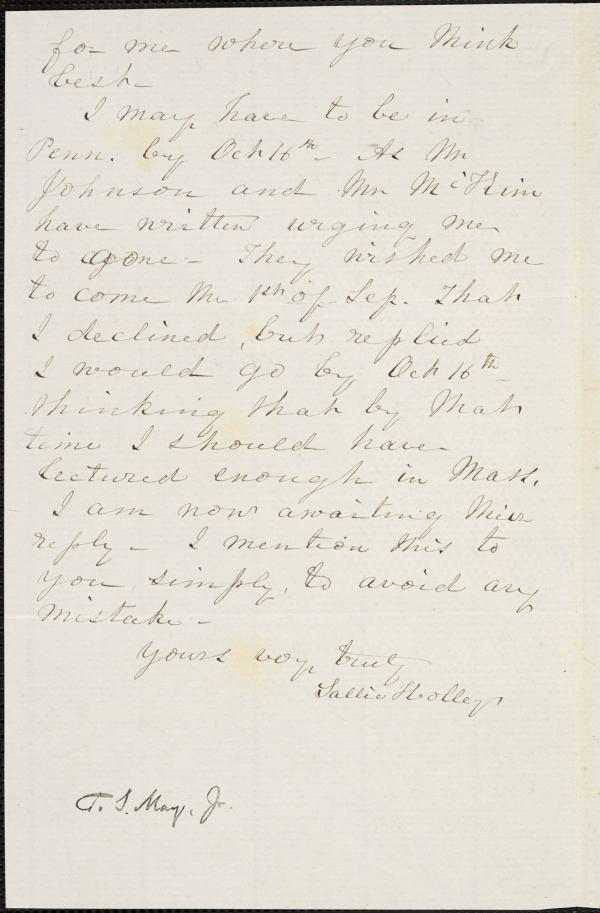 for me where you think
best-
I may have to be in
Penn. by Oct 16th - As Mr
Johnson and Mr McKim
have written urging me
to come - They wished me
to come the 1st of Sep. That
I declined, but replied
I would go by Oct 16th -
thinking that by that
time I should have
lectured enough in Mass.
I am now awaiting their
reply - I mention this to
you, simply, to avoid any
mistake -
Yours very truly
Sallie Holley
S. May, Jr.